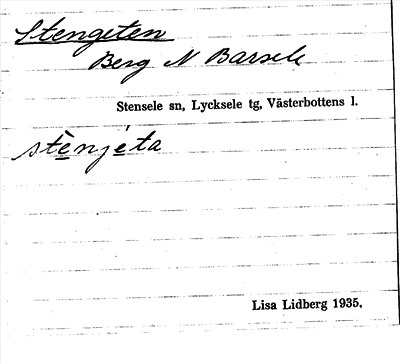 Stengeten
Berg N Barsele
Stensele sn, Lycksele tg, Västerbottens l.
stènjéta
Lisa Lidberg 1935.